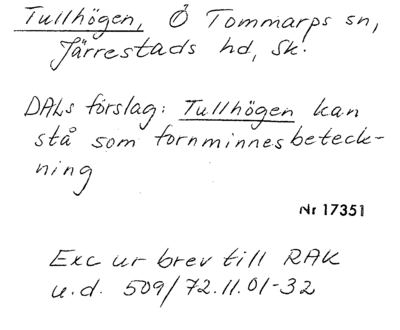 Tullhögen, Ö Tommarps sn,
Järrestads hd, Sk.
DALs förslag: Tullhögen kan
stå som fornminnesbeteck-
ning
Nr 17351
Exc ur brev till RAK
u.d. 509/72.11.01-32